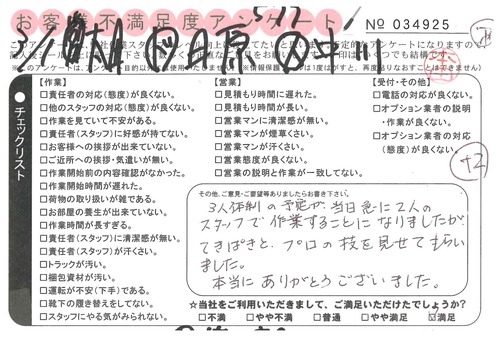 お客様不満足度アンケート
5/17
No 034925
チェックリスト
【作業】
□責任者の対応(態度)が良くない。
□他のスタッフの対応(態度)が良くない。
□作業を見ていて不安がある。
□責任者(スタッフ)に好感が持てない。
□お客様への挨拶が出来ていない。
□ご近所への挨拶・気遣いが無い。
□作業開始前の内容確認がなかった。
□作業開始時間が遅れた。
□荷物の取り扱いが雑である。
□お部屋の養生が出来ていない。
□作業時間が長すぎる。
□責任者(スタッフ)に清潔感が無い。
□責任者(スタッフ)が汗くさい。
□トラックが汚い。
□梱包資材が汚い。
□運転が不安(下手)である。
□靴下の履き替えをしてない。
□スタッフにやる気がみられない。
【営業】
□見積もり時間に遅れた。
□見積もり時間が長い。
□営業マンに清潔感が無い。
□営業マンが煙草くさい。
□営業マンが汗くさい。
□営業態度が良くない。
□営業の説明と作業が一致してない。
【受付・その他】
□電話の対応が良くない。
□オプション業者の説明
・作業が良くない。
□オプション業者の対応
(態度)が良くない。
+2
その他、ご意見・ご要望等ありましたらお書き下さい。
3人体制の予定が、当日急に2人の
スタッフで作業することになりましたが、
てきぱきと、プロの技を見せてもらい
ました。
本当にありがとうございました。
☆当社をご利用いただきまして、ご満足いただけたでしょうか?
□不満 □やや不満 □普通 □やや満足 ☑満足